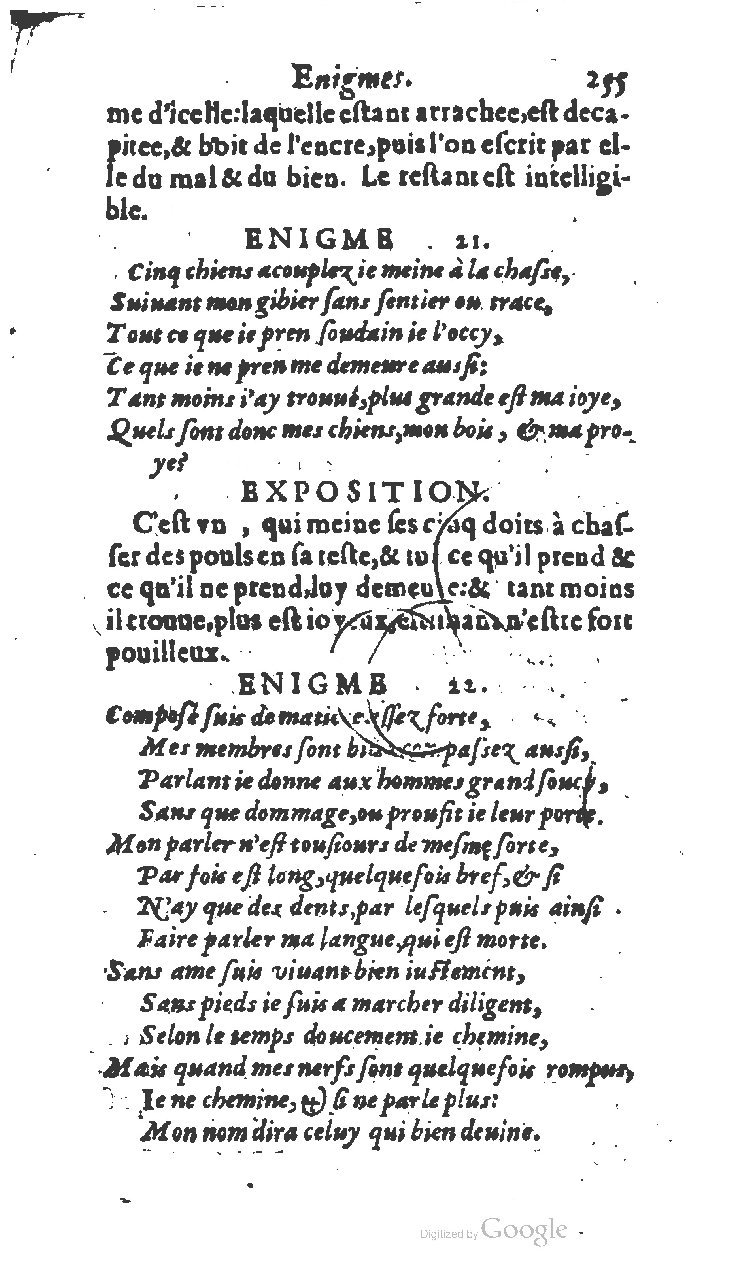 Enigmes. 255
me d'icelle:laquelle estant arrachee,est deca-
pitee,& boit de l'encre,puis l'on escrit par el-
le du mal & du bien. Le restant est intelligi-
ble.
ENIGME . 21.
Cinq chiens acouplez ie meine à la chasse,
Suiuant mon gibier sans sentier ou trace,
Tout ce que ie pren soudain ie l'occy,
Ce que ie ne pren me demeure aussi:
Tant moins i'ay trouué,plus grande est ma ioye,
Quels sont donc mes chiens,mon bois , & ma pro-
ye?
EXPOSITION.
C'est vn , qui meine ses cinq doits à chas-
ser des pouls en sa teste,& tout ce qu'il prend &
ce qu'il ne prend,luy demeure:& tant moins
il trouue,plus est ioyeux, n'estre fort
pouilleux.
ENIGME . 22.
Composé suis de matiere assez forte,
Mes membres sont bien compassez aussi,
Parlant ie donne aux hommes grand soucy,
Sans que dommage,ou proufit ie leur porte.
Mon parler n'est tousiours de mesme sorte,
Par fois est long,quelquefois bref,& si
N'ay que des dents,par lesquels puis ainsi .
Faire parler ma langue,qui est morte.
Sans ame suis viuant bien iustement,
Sans pieds ie suis a marcher diligent,
Selon le temps doucement ie chemine,
Mais quand mes nerfs sont quelquefois rompus,
Ie ne chemine, & si ne parle plus:
Mon nom dira celuy qui bien deuine.
Digitized by Google